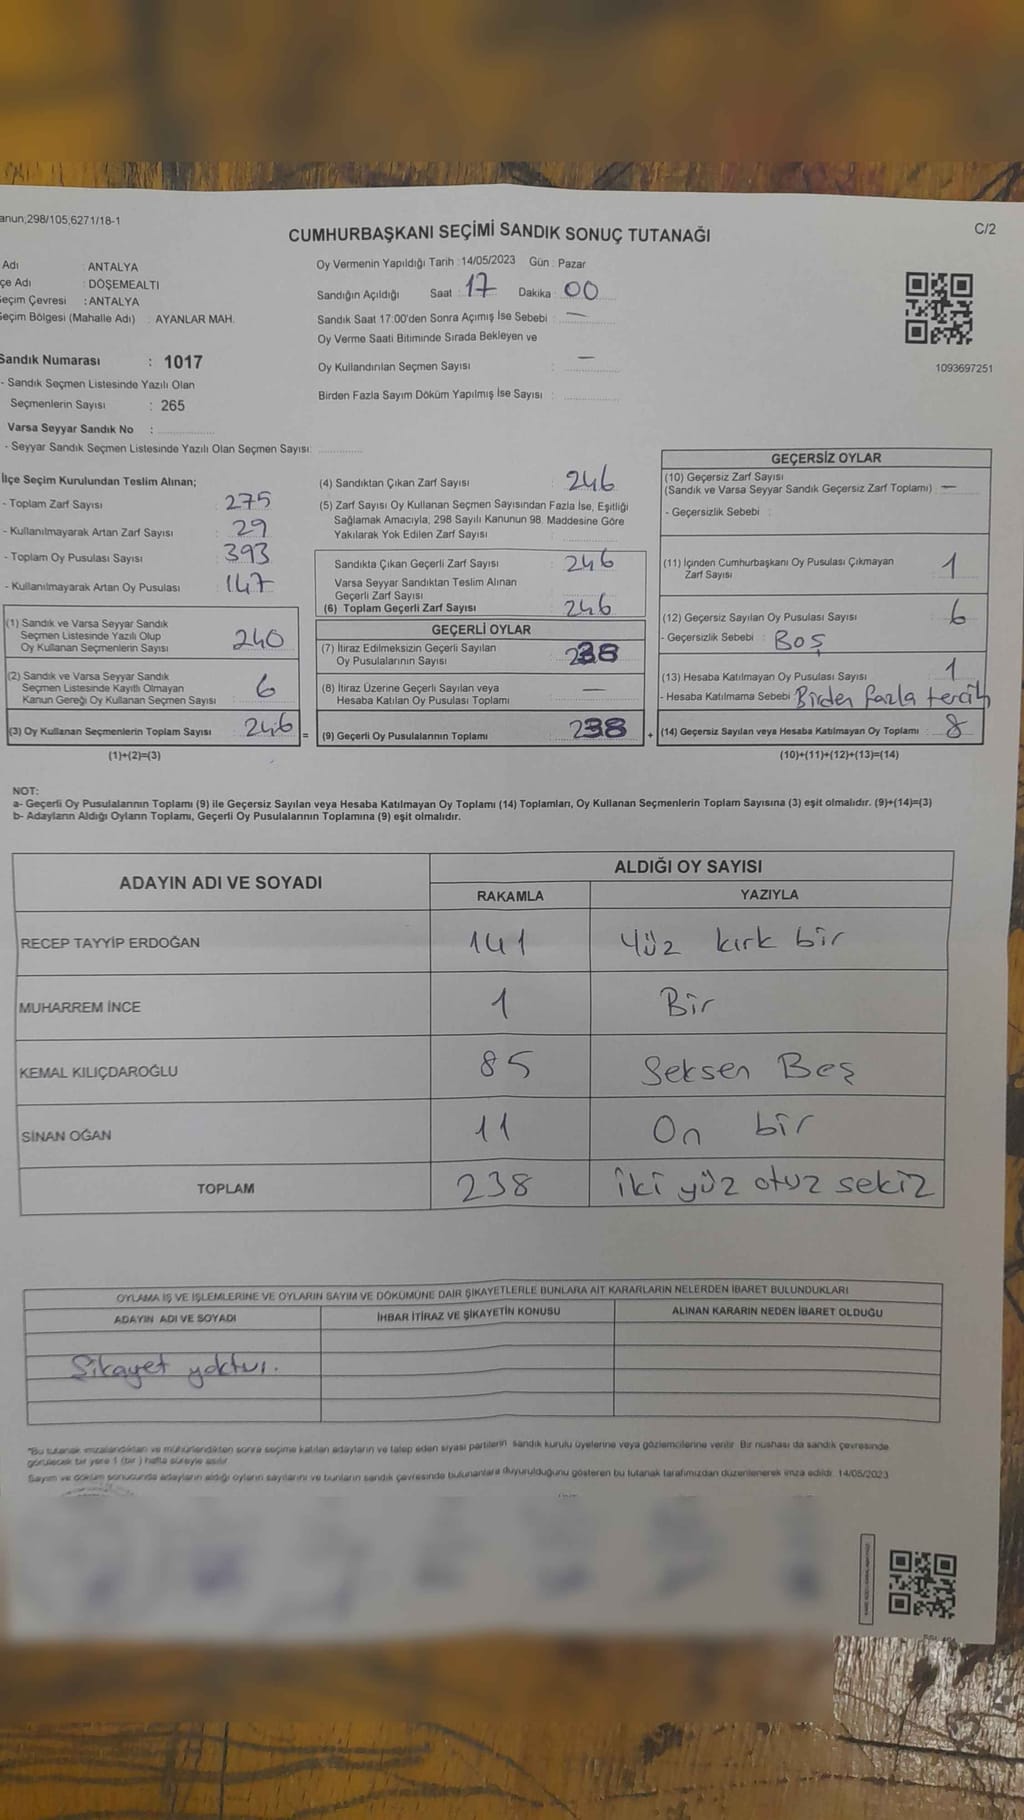 anun,298/105,6271/18-1
C/2
CUMHURBAŞKANI SEÇİMİ SANDIK SONUÇ TUTANAĞI
Adı : ANTALYA
çe Adı : DÖŞEMEALTI
Seçim Çevresi : ANTALYA
Seçim Bölgesi (Mahalle Adı) : AYANLAR MAH.
Sandık Numarası : 1017
- Sandık Seçmen Listesinde Yazılı Olan
Seçmenlerin Sayısı : 265
Varsa Seyyar Sandık No :
- Seyyar Sandık Seçmen Listesinde Yazılı Olan Seçmen Sayısı:
Oy Vermenin Yapıldığı Tarih : 14/05/2023 Gün : Pazar
Sandığın Açıldığı Saat : 17 Dakika : 00
Sandık Saat 17:00'den Sonra Açımış İse Sebebi : —
Oy Verme Saati Bitiminde Sırada Bekleyen ve
Oy Kullandırılan Seçmen Sayısı : —
Birden Fazla Sayım Döküm Yapılmış İse Sayısı :
1093697251
İlçe Seçim Kurulundan Teslim Alınan;
- Toplam Zarf Sayısı : 275
- Kullanılmayarak Artan Zarf Sayısı : 29
- Toplam Oy Pusulası Sayısı : 393
- Kullanılmayarak Artan Oy Pusulası : 147
(1) Sandık ve Varsa Seyyar Sandık
Seçmen Listesinde Yazılı Olup
Oy Kullanan Seçmenlerin Sayısı 240
(2) Sandık ve Varsa Seyyar Sandık
Seçmen Listesinde Kayıtlı Olmayan
Kanun Gereği Oy Kullanan Seçmen Sayısı 6
(3) Oy Kullanan Seçmenlerin Toplam Sayısı 246
(1)+(2)=(3)
=
(4) Sandıktan Çıkan Zarf Sayısı : 246
(5) Zarf Sayısı Oy Kullanan Seçmen Sayısından Fazla İse, Eşitliği
Sağlamak Amacıyla; 298 Sayılı Kanunun 98. Maddesine Göre
Yakılarak Yok Edilen Zarf Sayısı :
Sandıkta Çıkan Geçerli Zarf Sayısı : 246
Varsa Seyyar Sandıktan Teslim Alınan
Geçerli Zarf Sayısı :
(6) Toplam Geçerli Zarf Sayısı : 246
GEÇERLİ OYLAR
(7) İtiraz Edilmeksizin Geçerli Sayılan
Oy Pusulalarının Sayısı : 238
(8) İtiraz Üzerine Geçerli Sayılan veya
Hesaba Katılan Oy Pusulası Toplamı : —
(9) Geçerli Oy Pusulalarının Toplamı : 238
+
GEÇERSİZ OYLAR
(10) Geçersiz Zarf Sayısı
(Sandık ve Varsa Seyyar Sandık Geçersiz Zarf Toplamı) : —
- Geçersizlik Sebebi :
(11) İçinden Cumhurbaşkanı Oy Pusulası Çıkmayan
Zarf Sayısı 1
(12) Geçersiz Sayılan Oy Pusulası Sayısı : 6
- Geçersizlik Sebebi : BOŞ
(13) Hesaba Katılmayan Oy Pusulası Sayısı : 1
- Hesaba Katılmama Sebebi : Birden fazla tercih
(14) Geçersiz Sayılan veya Hesaba Katılmayan Oy Toplamı : 8
(10)+(11)+(12)+(13)=(14)
NOT:
a- Geçerli Oy Pusulalarının Toplamı (9) ile Geçersiz Sayılan veya Hesaba Katılmayan Oy Toplamı (14) Toplamları, Oy Kullanan Seçmenlerin Toplam Sayısına (3) eşit olmalıdır. (9)+(14)=(3)
b- Adayların Aldığı Oyların Toplamı, Geçerli Oy Pusulalarının Toplamına (9) eşit olmalıdır.
ADAYIN ADI VE SOYADI ALDIĞI OY SAYISI
RAKAMLA YAZIYLA
RECEP TAYYİP ERDOĞAN 141 Yüz kırk bir
MUHARREM İNCE 1 Bir
KEMAL KILIÇDAROĞLU 85 Seksen Beş
SİNAN OĞAN 11 On bir
TOPLAM 238 iki yüz otuz sekiz
OYLAMA İŞ VE İŞLEMLERİNE VE OYLARIN SAYIM VE DÖKÜMÜNE DAİR ŞİKAYETLERLE BUNLARA AİT KARARLARIN NELERDEN İBARET BULUNDUKLARI
ADAYIN ADI VE SOYADI İHBAR İTİRAZ VE ŞİKAYETİN KONUSU ALINAN KARARIN NEDEN İBARET OLDUĞU
Şikayet yoktur.
*Bu tutanak imzalandıktan ve mühürlendikten sonra seçime katılan adayların ve talep eden siyasi partilerin sandık kurulu üyelerine veya gözlemcilerine verilir. Bir nüshası da sandık çevresinde
görülecek bir yere 1 (bir) hafta süreyle asılır
Sayım ve döküm sonucunda adayların aldığı oyların sayılarını ve bunların sandık çevresinde bulunanlara duyurulduğunu gösteren bu tutanak tarafımızdan düzenlenerek imza edildi. 14/05/2023